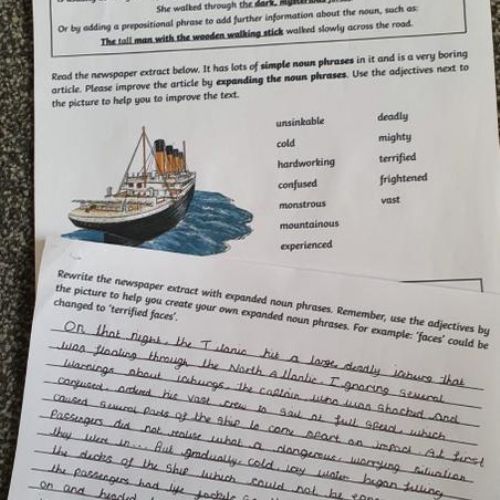 She walked through the dark, mysterious
Or by adding a prepositional phrase to add further information about the noun, such as:
The tall man with the wooden walking stick walked slowly across the road.
Read the newspaper extract below. It has lots of simple noun phrases in it and is a very boring
article. Please improve the article by expanding the noun phrases. Use the adjectives next to
the picture to help you to improve the text.
unsinkable
cold
hardworking
confused
monstrous
mountainous
experienced
deadly
mighty
terrified
frightened
vast
Rewrite the newspaper extract with expanded noun phrases. Remember, use the adjectives by
the picture to help you create your own expanded noun phrases. For example: 'faces' could be
changed to 'terrified faces'.
On that night, the Titanic hit a large, deadly iceburg that
was floating through the North Atlantic. Ignoring several
warnings about iceburgs, the captain, who was shocked and
confused, ordered his vast crew to sail at full speed, which
caused several parts of the ship to come apart on impact. At first
passengers did not realise what a dangerous, worrying situation
they were in... But gradually, cold, icey water began filling
the decks of the ship which could not be
the passengers had life jackets
on and headed